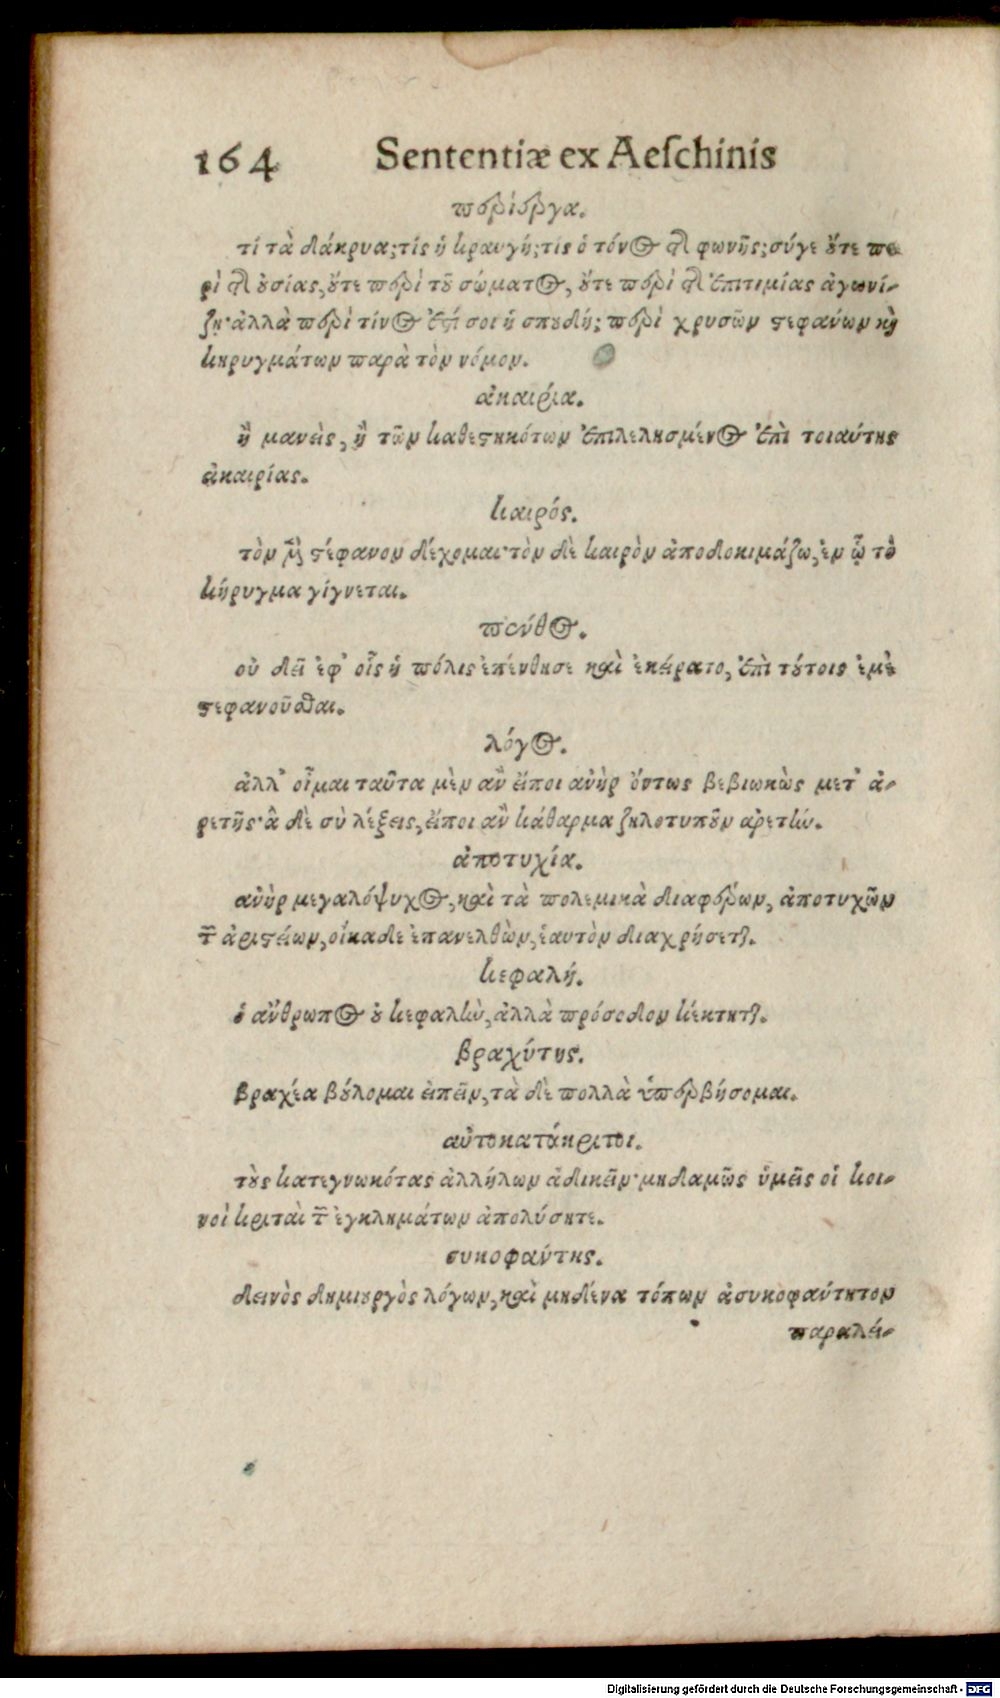 164 Sententiæ ex Aeſchinis
περίεργα.
τί τὰ δάκρυα; τίς ἡ κραυγή; τίς ὁ τόνος τῆς φωνῆς; σύγε οὔτε πε
ρὶ τῆς οὐσίας, οὔτε περὶ τοῦ σώματος, οὔτε περὶ τῆς ἐπιτιμίας ἀγωνί-
ζῃ· ἀλλὰ περὶ τίνος ἐστί σοι ἡ σπουδή; περὶ χρυσῶν στεφάνων καὶ
κηρυγμάτων παρὰ τὸν νόμον.
ἀκαιρία.
ἢ μανεὶς, ἢ τῶν καθεστηκότων ἐπιλελησμένος ἐπὶ τοιαύτης
ἀκαιρίας.
καιρός.
τὸν μὲν στέφανον δέχομαι· τὸν δὲ καιρὸν ἀποδοκιμάζω, ἐν ᾧ τὸ
κήρυγμα γίγνεται.
πένθος.
οὐ δεῖ ἐφ' οἷς ἡ πόλις ἐπένθησε καὶ ἐκείρατο, ἐπὶ τούτοις ἐμὲ
στεφανοῦσθαι.
λόγος.
ἀλλ' οἶμαι ταῦτα μὲν ἂν εἴποι ἀνὴρ ὄντως βεβιωκὼς μετ' ἀ-
ρετῆς· ἃ δὲ σὺ λέξεις, εἴποι ἂν κάθαρμα ζηλοτυποῦν ἀρετήν.
ἀποτυχία.
ἀνὴρ μεγαλόψυχος, καὶ τὰ πολεμικὰ διαφέρων, ἀποτυχὼν
τῶν ἀριστείων, οἴκαδε ἐπανελθὼν, ἑαυτὸν διαχρήσεται.
κεφαλή.
ὁ ἄνθρωπος οὐ κεφαλὴν, ἀλλὰ πρόσοδον κέκτηται.
βραχύτης.
βραχέα βούλομαι εἰπεῖν, τὰ δὲ πολλὰ ὑπερβήσομαι.
αὐτοκατάκριτοι.
τοὺς κατεγνωκότας ἀλλήλων ἀδικεῖν· μηδαμῶς ὑμεῖς οἱ κοι-
νοὶ κριταὶ τῶν ἐγκλημάτων ἀπολύσητε.
συκοφαύτης.
δεινὸς δημιουργὸς λόγων, καὶ μηδένα τόπων ἀσυκοφαύτητον
παραλεί-
Digitalisierung gefördert durch die Deutsche Forschungsgemeinschaft - DFG